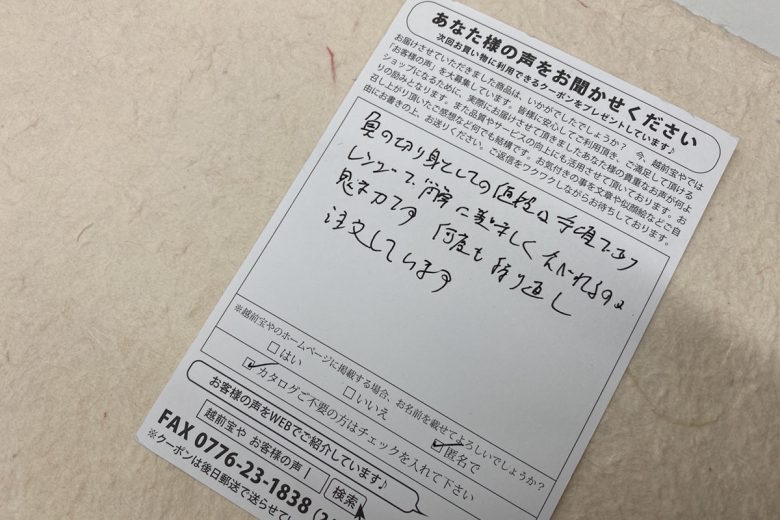 あなた様の声をお聞かせください
次回お買い物に利用できるクーポンをプレゼントしています♪
お届けさせていただきました商品は、いかがでしたでしょうか？ 今、越前宝やでは
「お客様の声」を大募集しています。皆様に安心してご利用頂き、ご満足して頂ける
ショップになるために、実際にお届けさせて頂きましたあなた様の貴重なお声が何よ
りの励みとなります。また品質やサービスの向上にも活用させて頂いております。お
召し上がり頂いたご感想など何でも結構です。お気付きの事を文章や似顔絵などご自
由にお書きの上、お送りください。ご返信をワクワクしながらお待ちしております。
魚の切り身としての値段は手頃であり
レンジで簡単に美味しく食べれるのは
魅力です 何度も繰り返し
注文しています
※越前宝やのホームページに掲載する場合、お名前を載せてよろしいでしょうか？
□はい □いいえ ☑匿名で
☑カタログご不要の方はチェックを入れて下さい
お客様の声をWEBでご紹介しています♪
越前宝や お客様の声 検索
FAX 0776-23-1838 (2
※クーポンは後日郵送で送らせてい